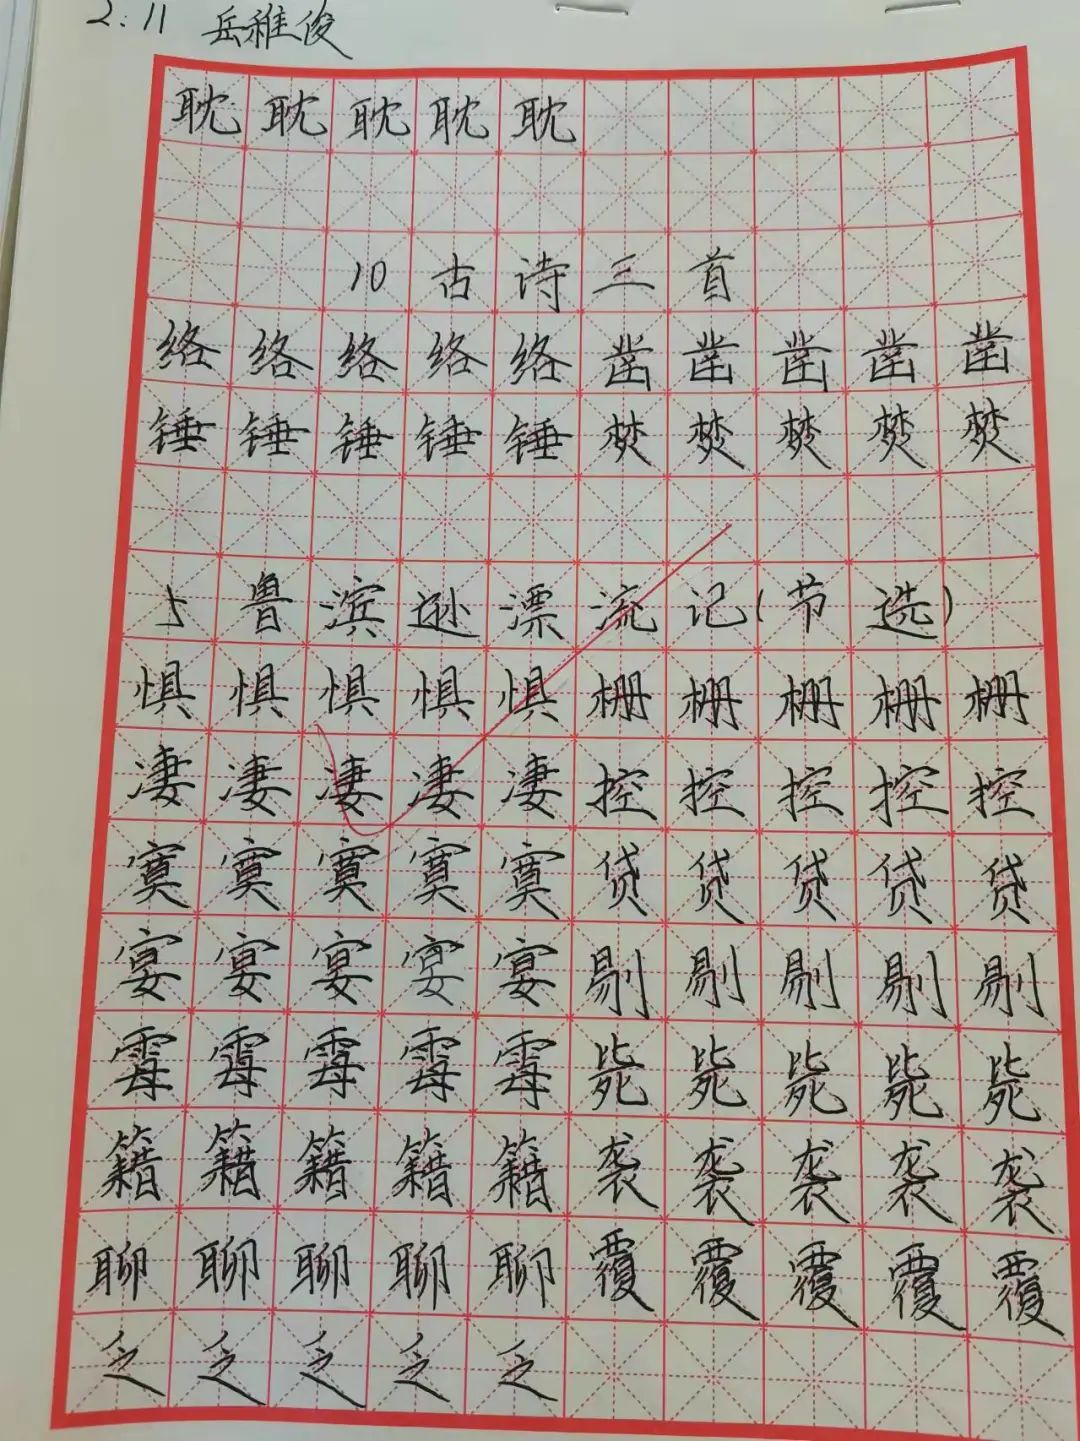 2.11 岳稚俊
耽耽耽耽耽
10古诗三首
络络络络络凿凿凿凿凿
锤锤锤锤锤焚焚焚焚焚
5鲁滨逊漂流记(节选)
惧惧惧惧惧栅栅栅栅栅
凄凄凄凄凄控控控控控
寞寞寞寞寞贷贷贷贷贷
宴宴宴宴宴剔剔剔剔剔
霉霉霉霉霉毙毙毙毙毙
籍籍籍籍籍袭袭袭袭袭
聊聊聊聊聊覆覆覆覆覆
乏乏乏乏乏